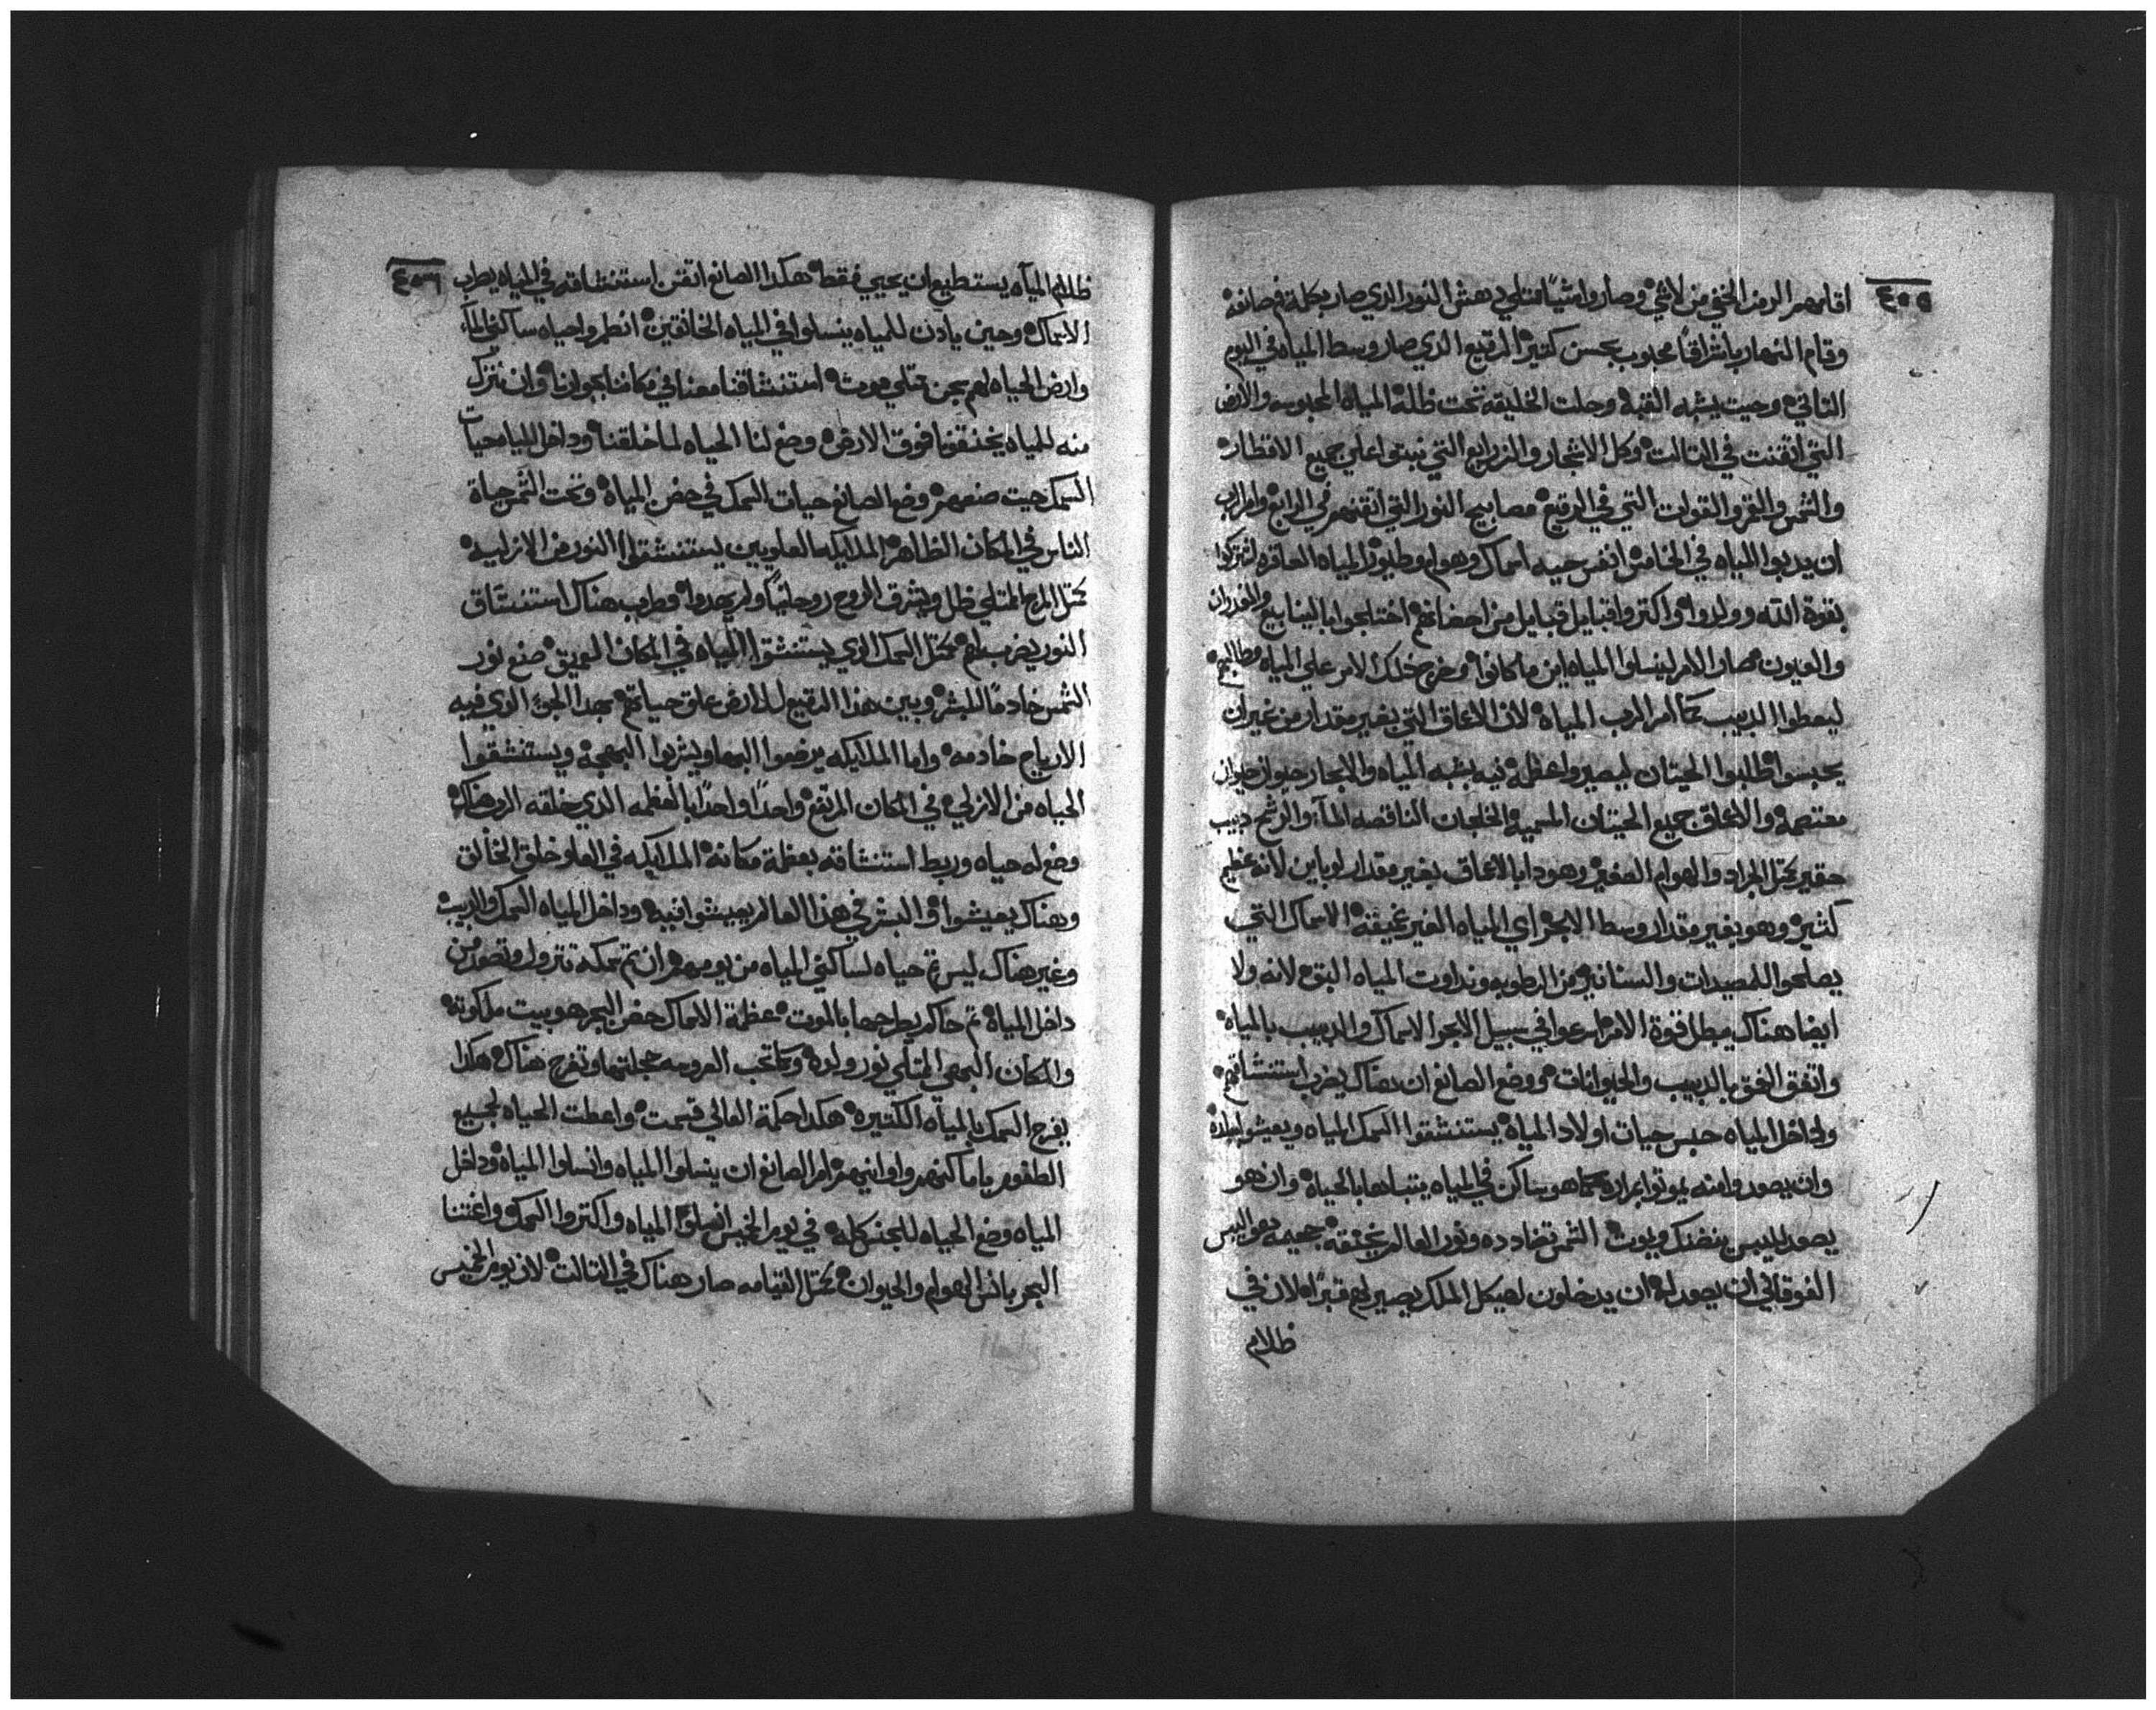 ٤٥٥
اقامهم الرمز الخفي من لاشي وصاروا شيًا ممتلي دهش النور الدي صار بكلمة فم صانعه
وقام النهار باشراقًا محبوب بحسن كتير الرقيع الدي صار وسط المياه في اليوم
التاني وحيت يشبه القبه وجلت الخليقه تحت ظلة المياه المحبوسه والارض
التي اتقنت في التالت وكل الاشجار والزرايع التي نبتوا علي جميع الاقطار
والشمس والقمر والقوات التي في الرقيع مصابيح النور التي اتقنهم في الرابع وامر الرب
ان يدبوا المياه في الخامس انفس حيه اسماك وهوام وطيور المياه العاقره اشتركوا
بقوة الله وولدوا واكتروا قبايل قبايل من احضانهم اختلجوا بالينابيع والغدران
والعيون صار الامر لينسلوا المياه اين ما كانوا وخرج خلك الامر علي المياه وطالبهم
ليعطوا الدبيب كما امر الرب المياه لان الاعماق التي بغير مقدار من غير ان
يحبسوا طلبوا الحيتان ليصير واعظمة نيه بشبه المياه والابحار حيوان حيوان
معتصمة والاعماق جميع الحيتان الملحميه الخلجان الناقصه الماء والرشح دبيب
حقير كمتل الجراد والهوام الصغير وهودا بالاعماق بغير مقدار لوياتن لانه عظيم
كتير وهو بغير مقدار وسط الابحر اي المياه الغير غميقة الاسماك التي
يصلحوا للمصيدات والسنانير من الرطوبه ونداوت المياه البق لانه ولا
ايضا هناك مبطل قوة الامر اسرعوا في سبيل الابحر الاسماك والدبيب بالمياه
واتفق الفق بالدبيب والحيوانات ووضع الصانع ان هناك يضرب استنشاقهم
ولداخل المياه حبس حيات اولاد المياه يستنشقوا السمك المياه ويعيشوا بمراره
وان يصعدوا منه يموتوا بمراره كما هو ساكن في المياه يتباها بالحياه وان هو
يصعد لليبس يتضنك ويموت الشمس تضادده ونور العالم يخنقه جحيمه هو اليبس
الفوقاني ان يصعد له ان يدخلون لهيكل الملك يصير لهم قبرًا لان في
ظلام
٤٥٦
ظلام المياه يستطيع ان يحيي فقط هكدا الصانع اتقن استنشاقه في المياه يطرب
الاسماك وحين يادن للمياه ينسلوا في المياه الخانقين انطروا حياه ساكني الماء
وارض الحياه لهم بحن ممتلي موت استنشاقنا معنا في مكاننا بجوارنا وان نترك
منه للمياه يخنقونا فوق الارض وضع لنا الحياه لما خلقنا وداخل المياه حيات
السمك حيت صنعهم وضع الصانع حيات السمك في حضن المياه وتحت الشمس حياة
الناس في المكان الظاهر الملايكه العلويين يستنشقوا النور من الازليه
كمتل المرج الممتلي ظل ويشرف الروح روحانيًا ولم يحدوا وطايب هناك استنشاق
النور يضرب لهم كمتل السمك الدي يستنشقوا المياه في المكان العميق صنع نور
الشمس خادمًا للبشر وبين هدا الرقيع للارض علق حياتهم بهدا الجو الدي فيه
الارياح خادمه واما الملايكه يرضعوا البها ويشربوا البهجه ويستنشقوا
الحياه من الازلي في المكان المرتفع واحدًا واحدًا بالعظمه الدي خلقه الرب هناك
وضع له حياه وربط استنشاقه بعظمة مكانه الملايكه في العلو خلق الخالق
وهناك يعيشوا والبشر في هدا العالم يعيشوا فيه وداخل المياه السمك والدبيب
وغير هناك ليس تم حياه لساكني المياه من يومهم ان تم سمكه تترول وتصعد من
داخل المياه تم حاكم يطرحها بالموت عظمة الاسماك حضن البحر هو بيت ملكوته
والمكان البهي الممتلي نور ولده وكما تحب العروسه حجلتها وتفرح هناك هكدا
يفرح السمك بالمياه الكتيره هكدا حكمة العالي قسمت واعطت الحياه لجميع
الطقوس باماكنهم واوانيهم امر الصانع ان ينسلوا المياه وانسلوا المياه وداخل
المياه وضع الحياه للجنس كله في يوم الخميس انسلوا المياه واكتروا السمك واغتنا
البحر بانس الهوام والحيوان كمتل القيامه صار هناك في التالت لان يوم الخميس